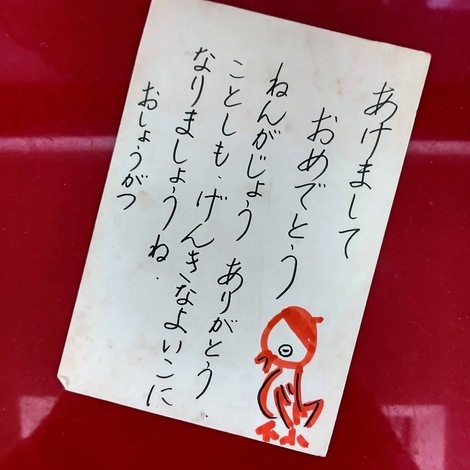 あけまして
おめでとう
ねんがじょう ありがとう.
ことしも、げんきなよいこに
なりましょうね.
おしょうがつ